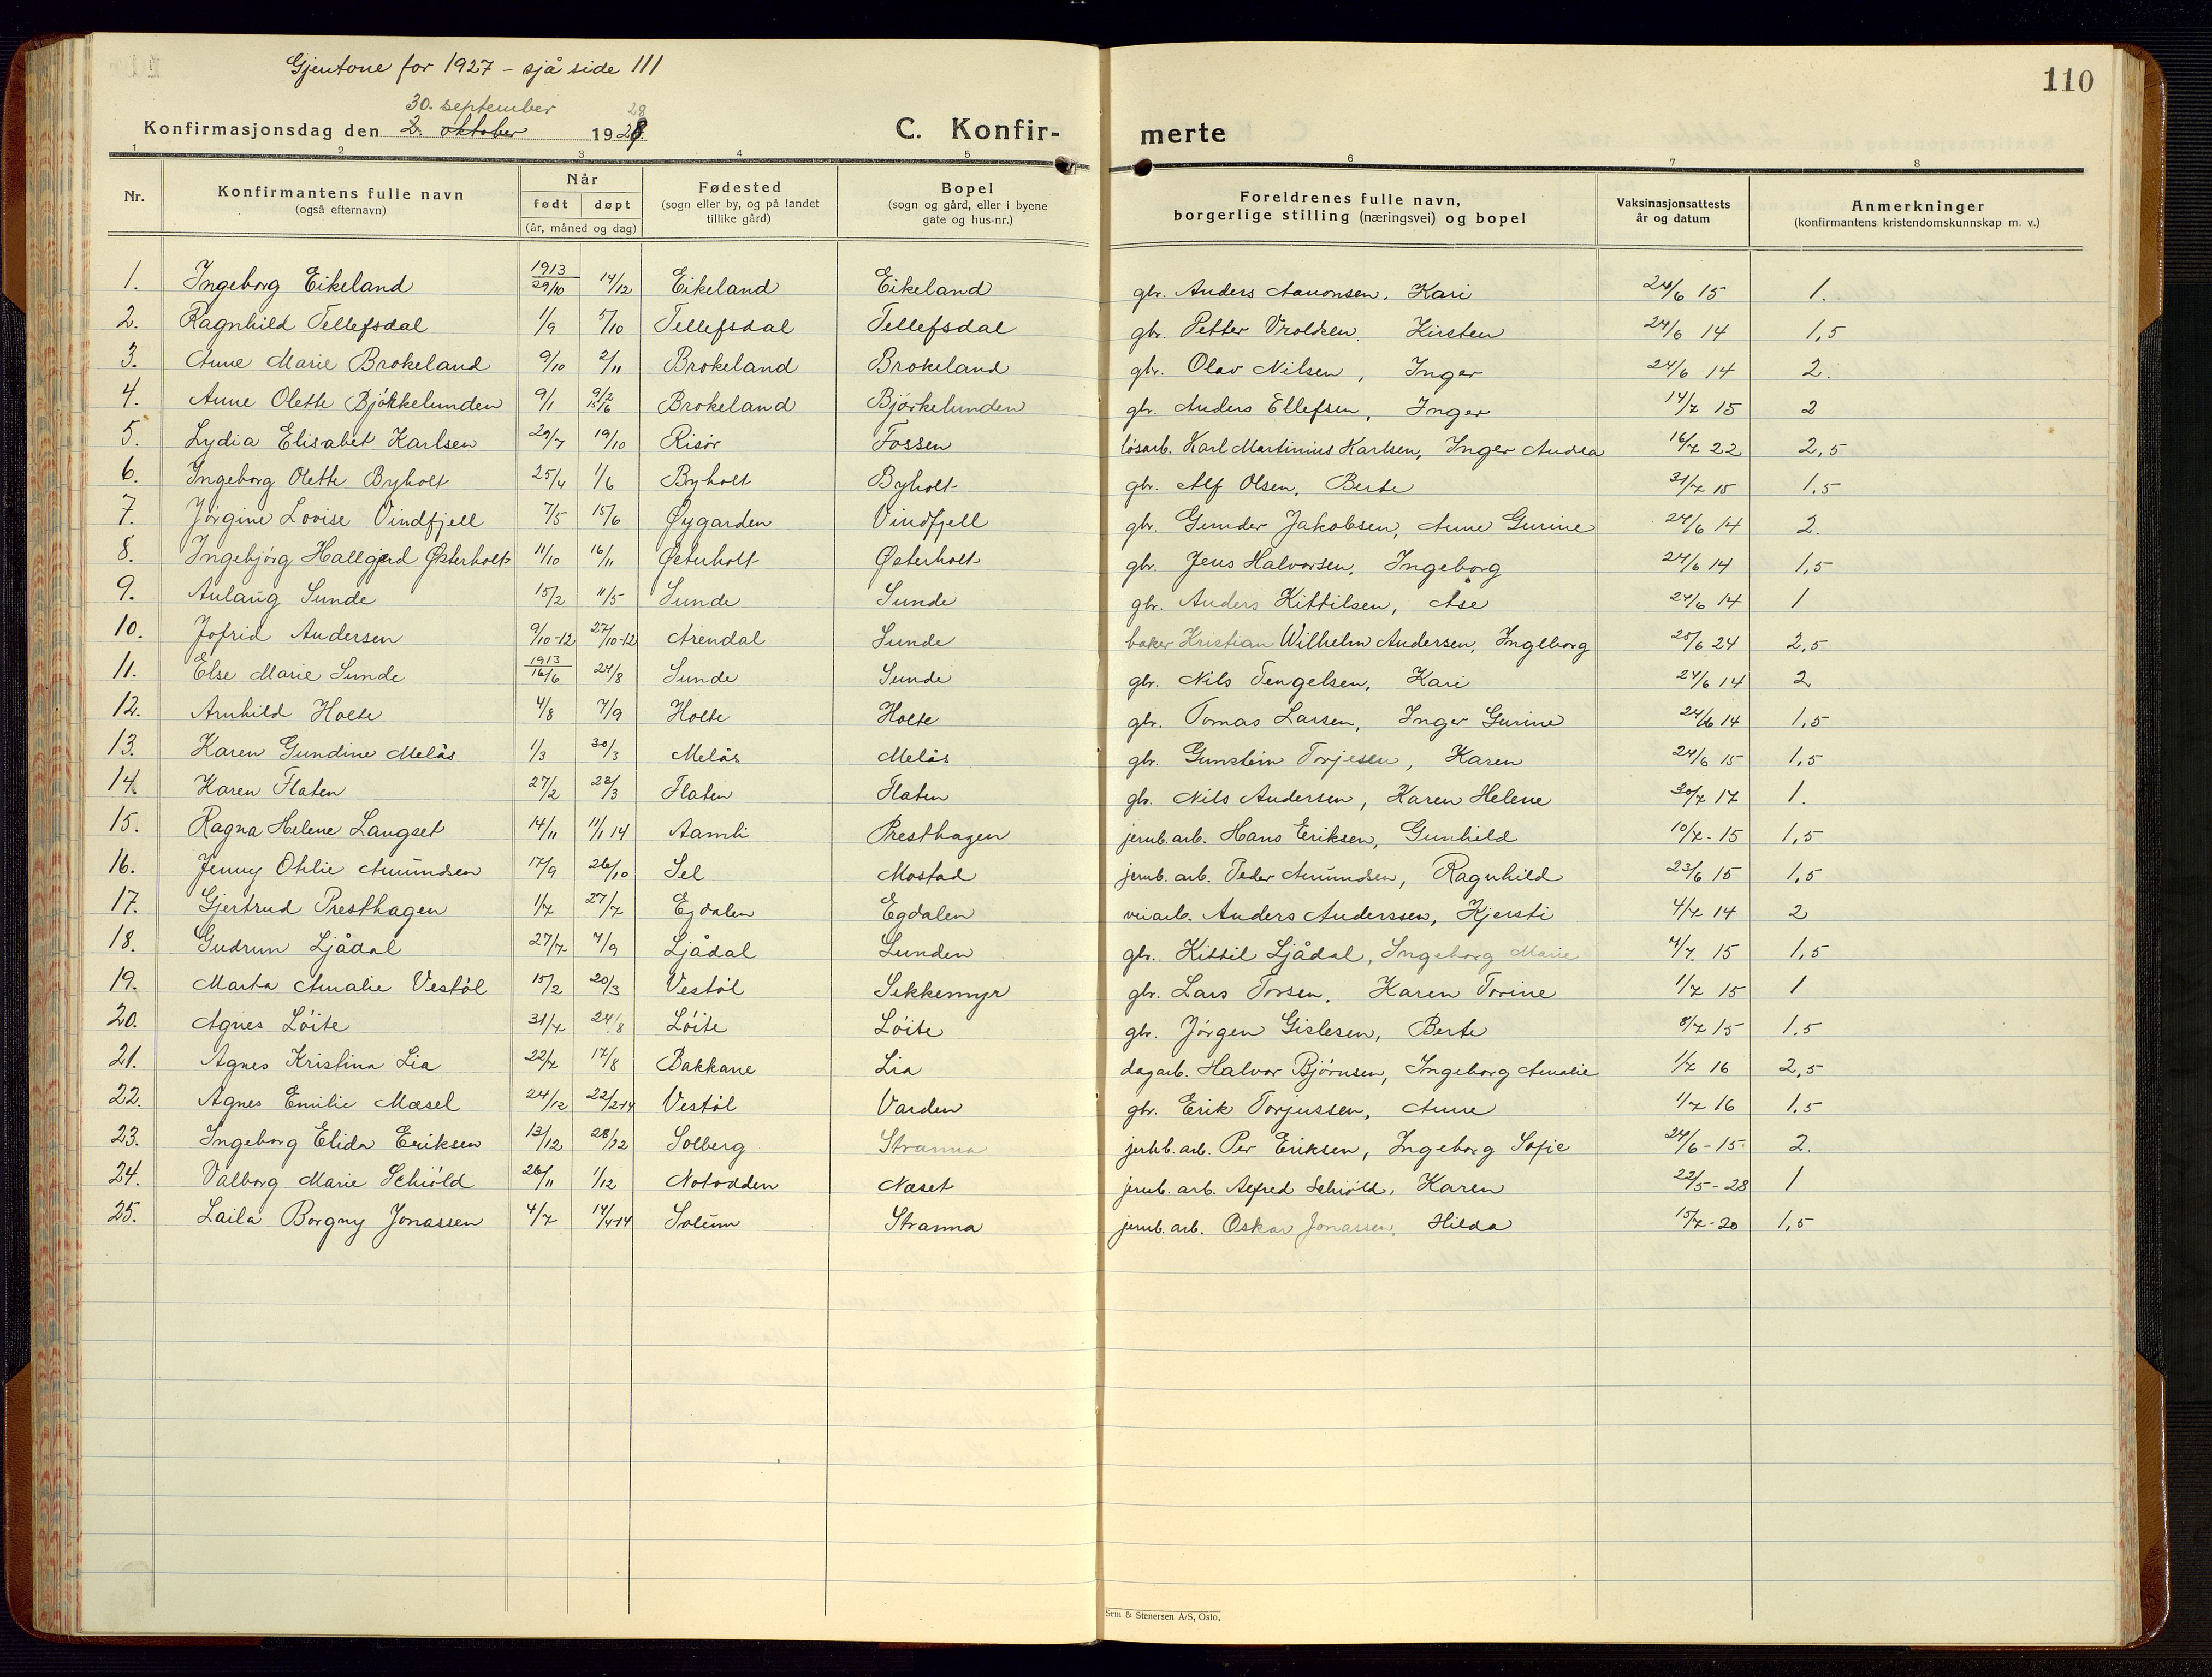 Gjentone for 1927 - sjå side 111
110
30. september 28
Konfirmasjonsdag den 2. oktober 1928.
C. Konfir-
merte
1 2 3 4 5 6 7 8
Nr. Konfirmantens fulle navn (også efternavn) Når født døpt (år, måned og dag) Fødested (sogn eller by, og på landet tillike gård) Bopel (sogn og gård, eller i byene gate og hus-nr.) Foreldrenes fulle navn, borgerlige stilling (næringsvei) og bopel Vaksinasjonsattests år og datum Anmerkninger (konfirmantens kristendomskunnskap m. v.)
1. Ingeborg Eikeland 1913 29/10 14/12 Eikeland Eikeland gbr. Anders Aanonsen, Kari 24/6 15 1.
2. Ragnhild Tellefsdal 1/9 5/10 Tellefsdal Tellefsdal gbr. Petter Vroldsen, Kirsten 24/6 14 1,5
3. Anne Marie Brokeland 9/10 2/11 Brokeland Brokeland gbr. Olav Nilsen, Inger 24/6 14 2.
4. Anne Olette Bjørkelunden 9/1 9/2 15/6 Brokeland Bjørkelunden gbr. Anders Ellefsen, Inger 14/7 15 2
5. Lydia Elisabet Karlsen 29/7 19/10 Risør Fossen løsarb. Karl Martinius Karlsen, Inger Andrea 16/7 22 2,5
6. Ingeborg Olette Byholt 25/4 1/6 Byholt Byholt gbr. Alf Olsen, Berte 31/7 15 1,5
7. Jørgine Lovise Vindfjell 7/5 15/6 Øygarden Vindfjell gbr. Gunder Jakobsen, Anne Gurine 24/6 14 2.
8. Ingebjørg Hallgjerd Østerholt 11/10 16/11 Østerholt Østerholt gbr. Jens Halvorsen, Ingeborg 24/6 14 1,5
9. Aulaug Sunde 15/2 11/5 Sunde Sunde gbr. Anders Kittilsen, Åse 24/6 14 1
10. Jofrid Andersen 9/10-12 27/10-12 Arendal Sunde baker Kristian Wilhelm Andersen, Ingeborg 25/6 24 2,5
11. Else Marie Sunde 1913 16/6 24/8 Sunde Sunde gbr. Nils Tengelsen, Kari 24/6 14 2
12. Arnhild Holte 4/8 7/9 Holte Holte gbr. Tomas Larsen, Inger Gurine 24/6 14 1,5
13. Karen Gundine Melås 1/3 30/3 Melås Melås gbr. Gunstein Torjesen, Karen 24/6 15 1,5
14. Karen Flaten 27/2 28/3 Flaten Flaten gbr. Nils Andersen, Karen Helene 30/7 17 1.
15. Ragna Helene Langset 14/11 11/1 14 Aamli Presthagen jernb. arb. Hans Eriksen, Gunhild 10/7 - 15 1,5
16. Jenny Otilie Amundsen 17/9 26/10 Sel Mostad jernb. arb. Peder Amundsen, Ragnhild 23/6 15 1,5
17. Gjertrud Presthagen 1/7 27/7 Egdalen Egdalen veiarb. Anders Anderssen, Kjersti 4/7 14 2
18. Gudrun Ljådal 27/7 7/9 Ljådal Lunden gbr. Kittil Ljådal, Ingeborg Marie 7/7 15 1,5
19. Marta Amalie Vestøl 15/2 20/3 Vestøl Sekkemyr gbr. Lars Torsen, Karen Torine 1/7 15 1
20. Agnes Løite 31/7 24/8 Løite Løite gbr. Jørgen Gislesen, Berte 8/7 15 1.5
21. Agnes Kristina Lia 22/7 17/8 Bakkane Lia dagarb. Halvor Bjørnsen, Ingeborg Amalie 1/7 16 2,5
22. Agnes Emilie Mæsel 24/12 22/2-14 Vestøl Varden gbr. Erik Torjussen, Anne 1/7 16 1.5
23. Ingeborg Elida Eriksen 13/12 28/12 Solberg Stranna jernb. arb. Per Eriksen, Ingeborg Sofie 24/6 - 15 2.
24. Valborg Marie Schiøld 26/11 1/12 Notodden Næset jernb. arb. Alfred Schiøld, Karen 22/5 - 28 1
25. Laila Borgny Jonassen 4/7 14/4-14 Solum Stranna jernb. arb. Oskar Jonassen, Hilda 15/7 - 20 1,5
Sem & Stenersen A/S, Oslo.